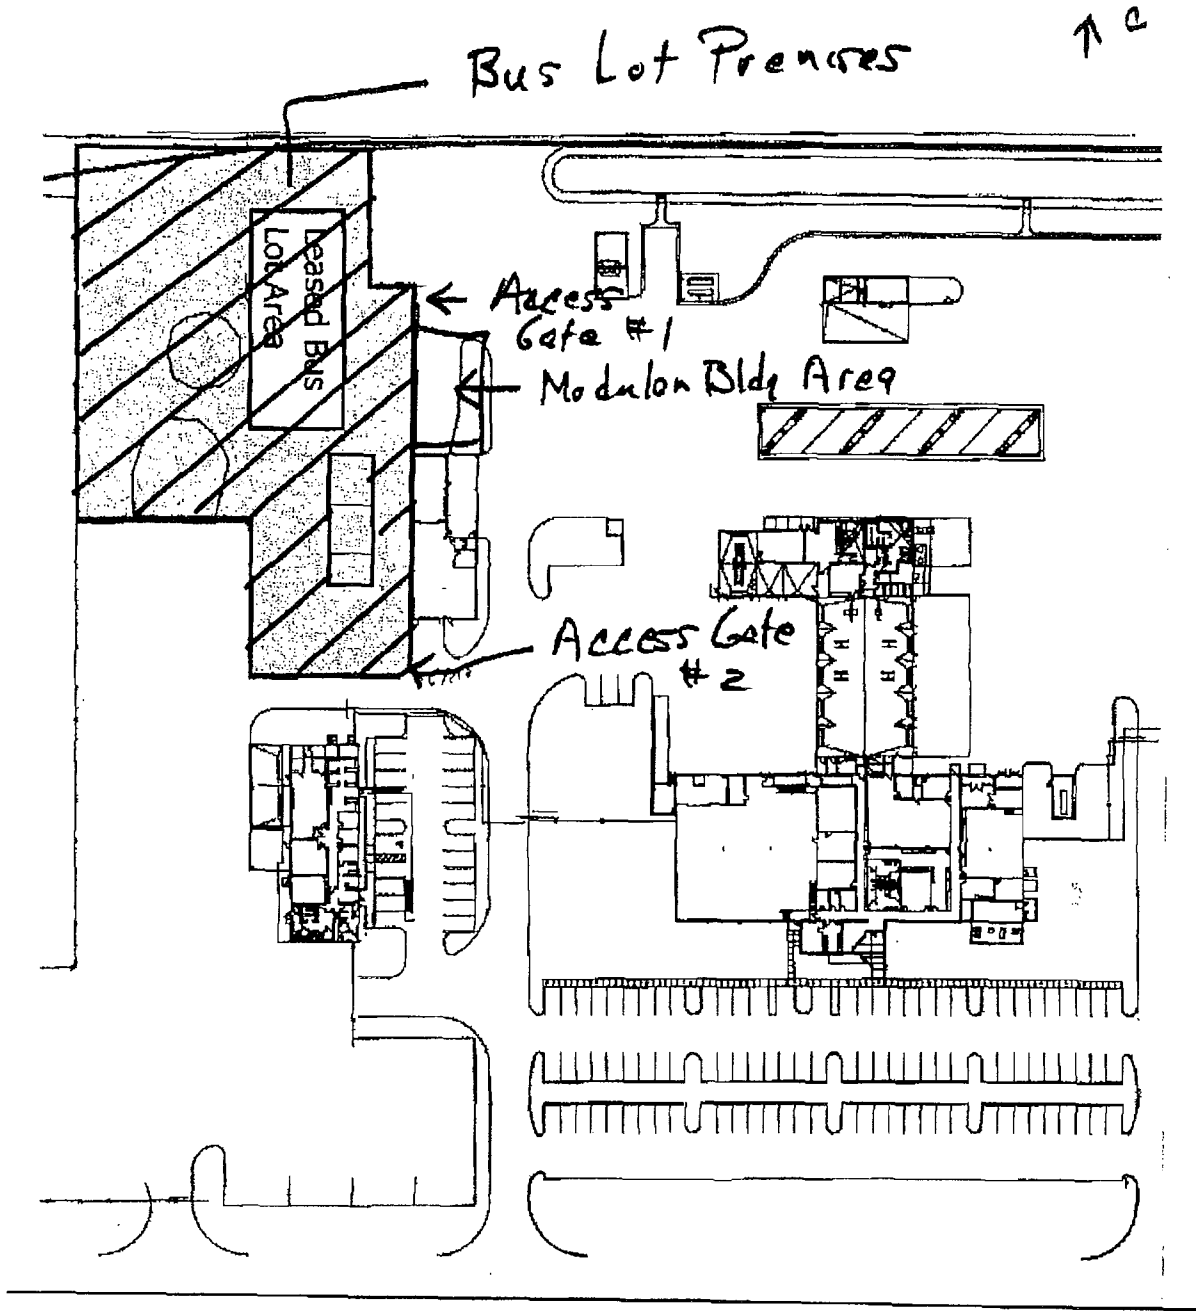 Bus Lot Premises
Leased Bus
Lot Area
Access
Gate #1
Modulon Bldg Area
Access Gate
#2